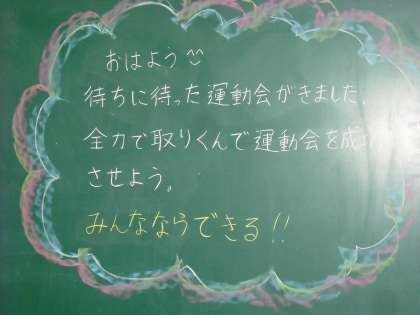 おはよう
待ちに待った運動会がきました。
全力で取りくんで運動会を成功
させよう。
みんなならできる!!